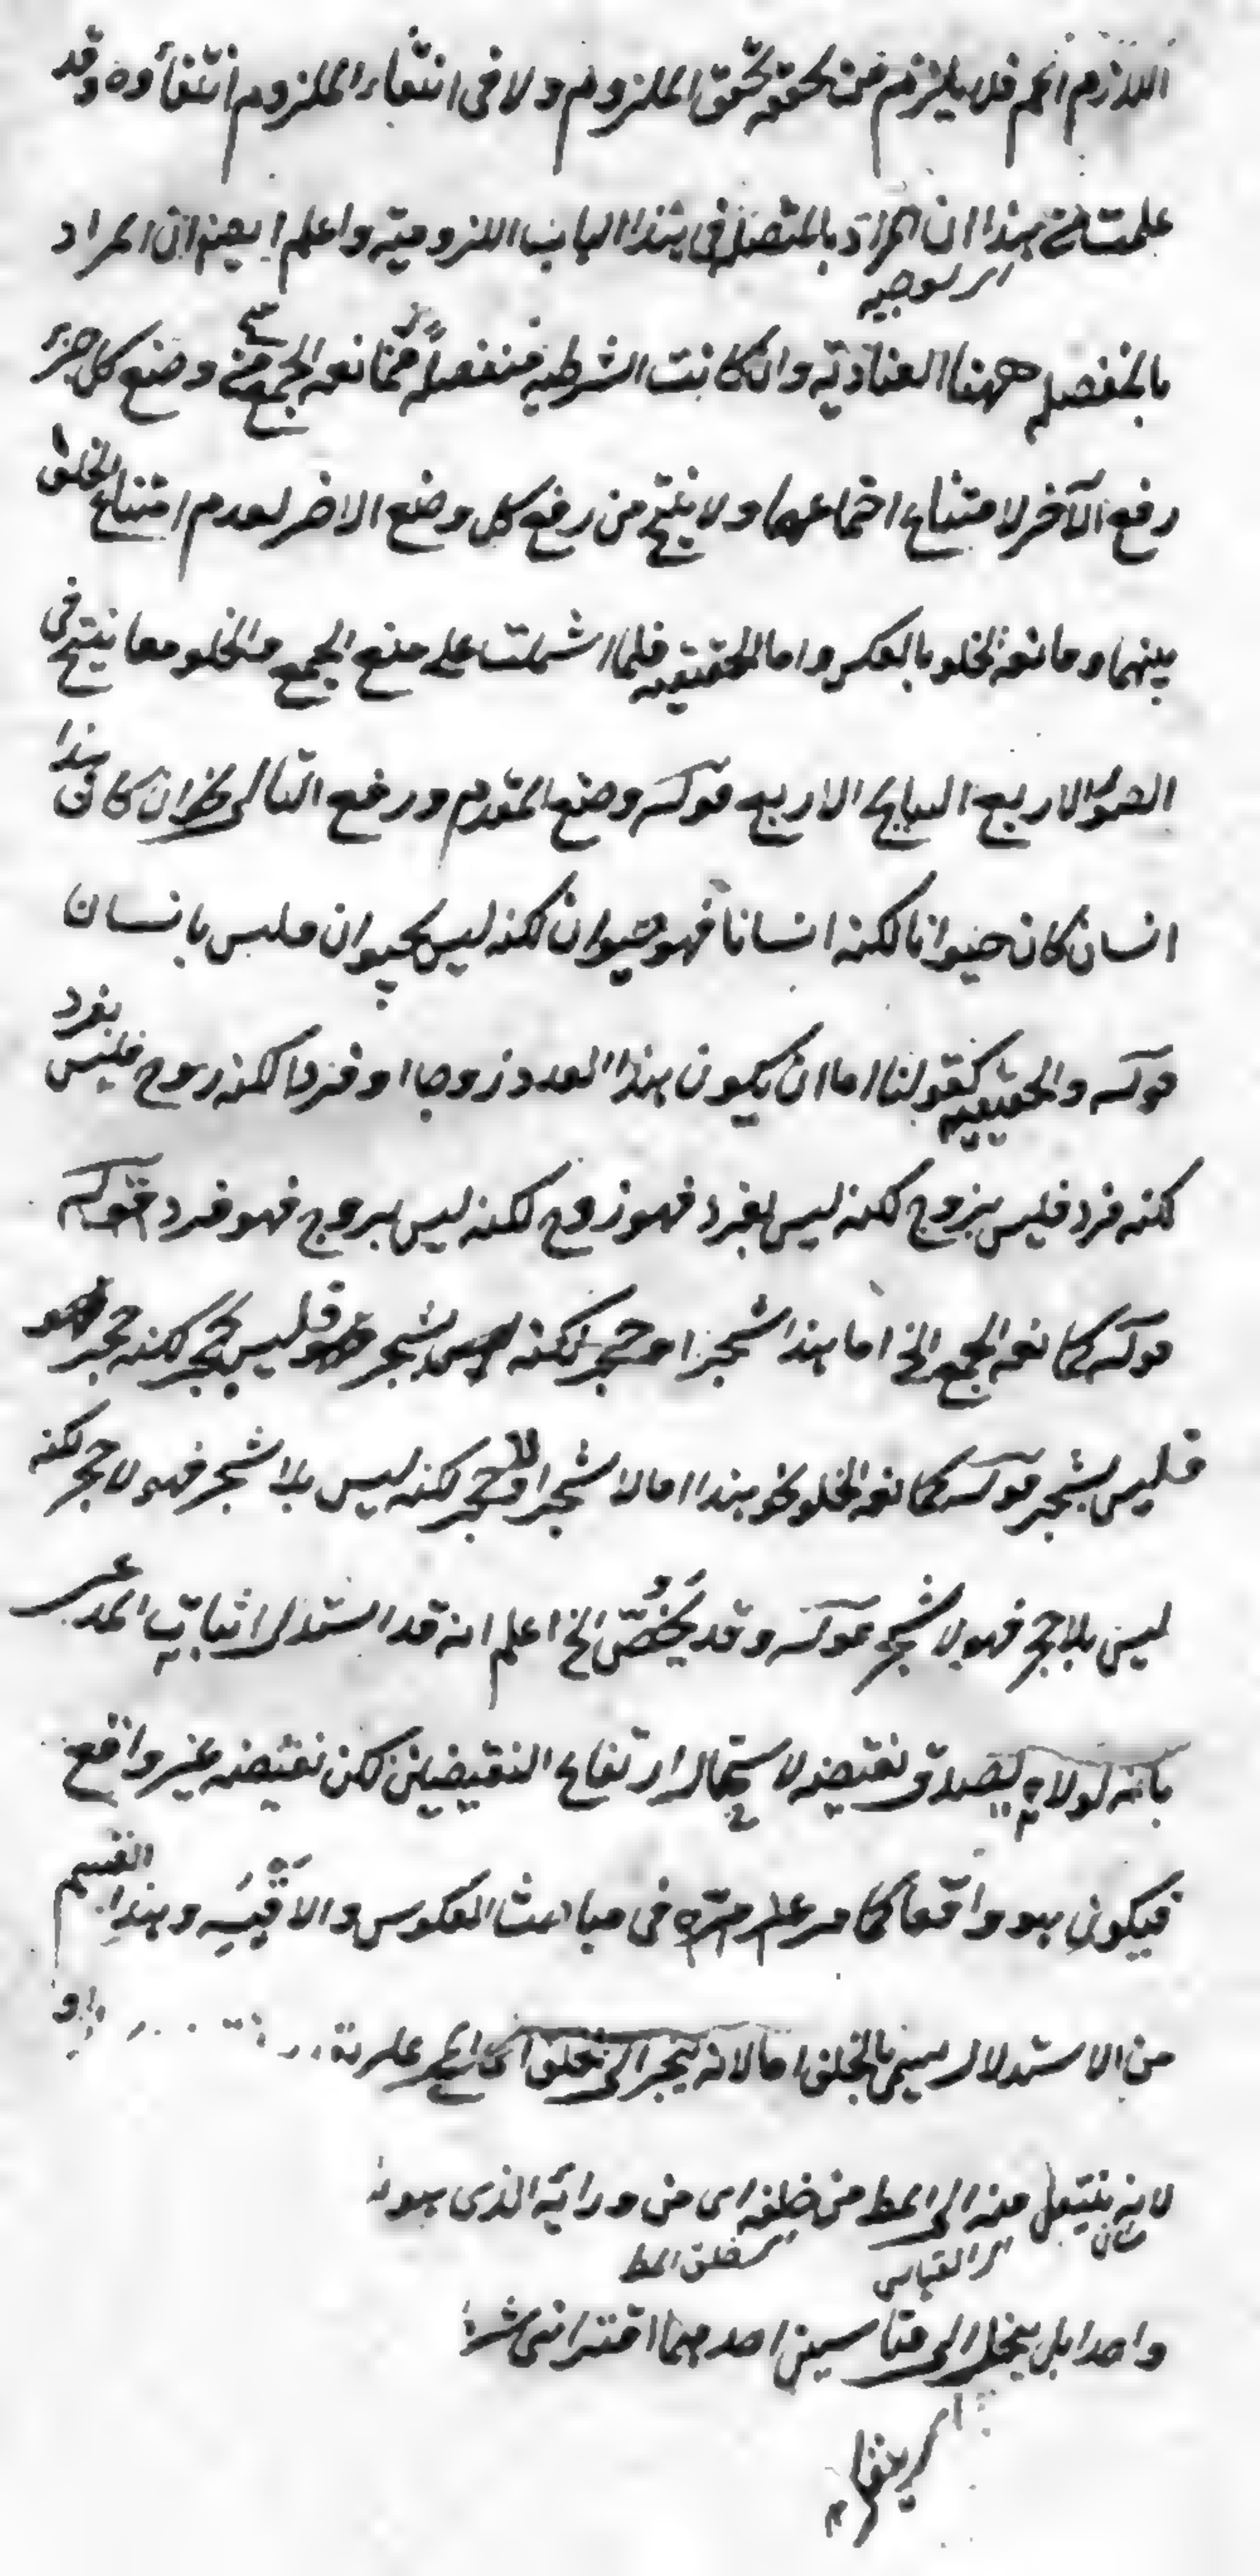 اللازم اعم فلا يلزم من تحققه تحقق الملزوم ولا في انتفاء الملزوم انتفاؤه وقد
علمت من هذا ان المراد بالمتصل في هذا الباب اللزومية واعلم ايضا ان المراد
بالمنفصله ههنا العنادية وان كانت الشرطيه منفصلة فمانعه الجمع وضع كل جزء
رفع الآخر لامتناع اجتماعهما ولا ينتج من رفع كل وضع الاخر لعدم امتناع الخلو
بينهما ومانعه الخلو بالعكس واما الحقيقيه فلما اشتملت على منع الجمع والخلو معا ينتج في
الصور الاربع النتايج الاربع قوله وضع المقدم ورفع التالى نحو ان كان هذا
انسان كان حيوانا لكنه انسانا فهو حيوان لكنه ليس بحيوان فليس بانسان
قوله والحقيقيه كقولنا اما ان يكون هذا العدد زوجا او فردا لكنه زوج فليس بفرد
لكنه فرد فليس بزوج لكنه ليس بفرد فهو زوج لكنه ليس بزوج فهو فرد قوله
قوله كمانعه الجمع الخ اما هذا شجر او حجر لكنه شجر فليس بحجر لكنه حجر
فليس بشجر قوله كمانعه الخلو نحو هذا اما لا شجر او لا حجر لكنه ليس بلا شجر فهو لا حجر لكنه
ليس بلا حجر فهو لا شجر قوله وقد يختص الخ اعلم انه قد استدل اثبات المدعى
بانه لولاه لصدق نقيضه لاستحالة ارتفاع النقيضين لكن نقيضه غير واقع
فيكون هو واقعا كما مر غير مرة في مباحث العكوس والاقيسه وهذا القسم
من الاستدلال يسمى بالخلف اما لانه ينجر الى الخلف
لانه ينتقل منه الى المط من خلفه اى من ورائه الذى هو
اى القياس
اى خلف المط
واحدا بل ينحل الى قياسين احدهما اقترانى